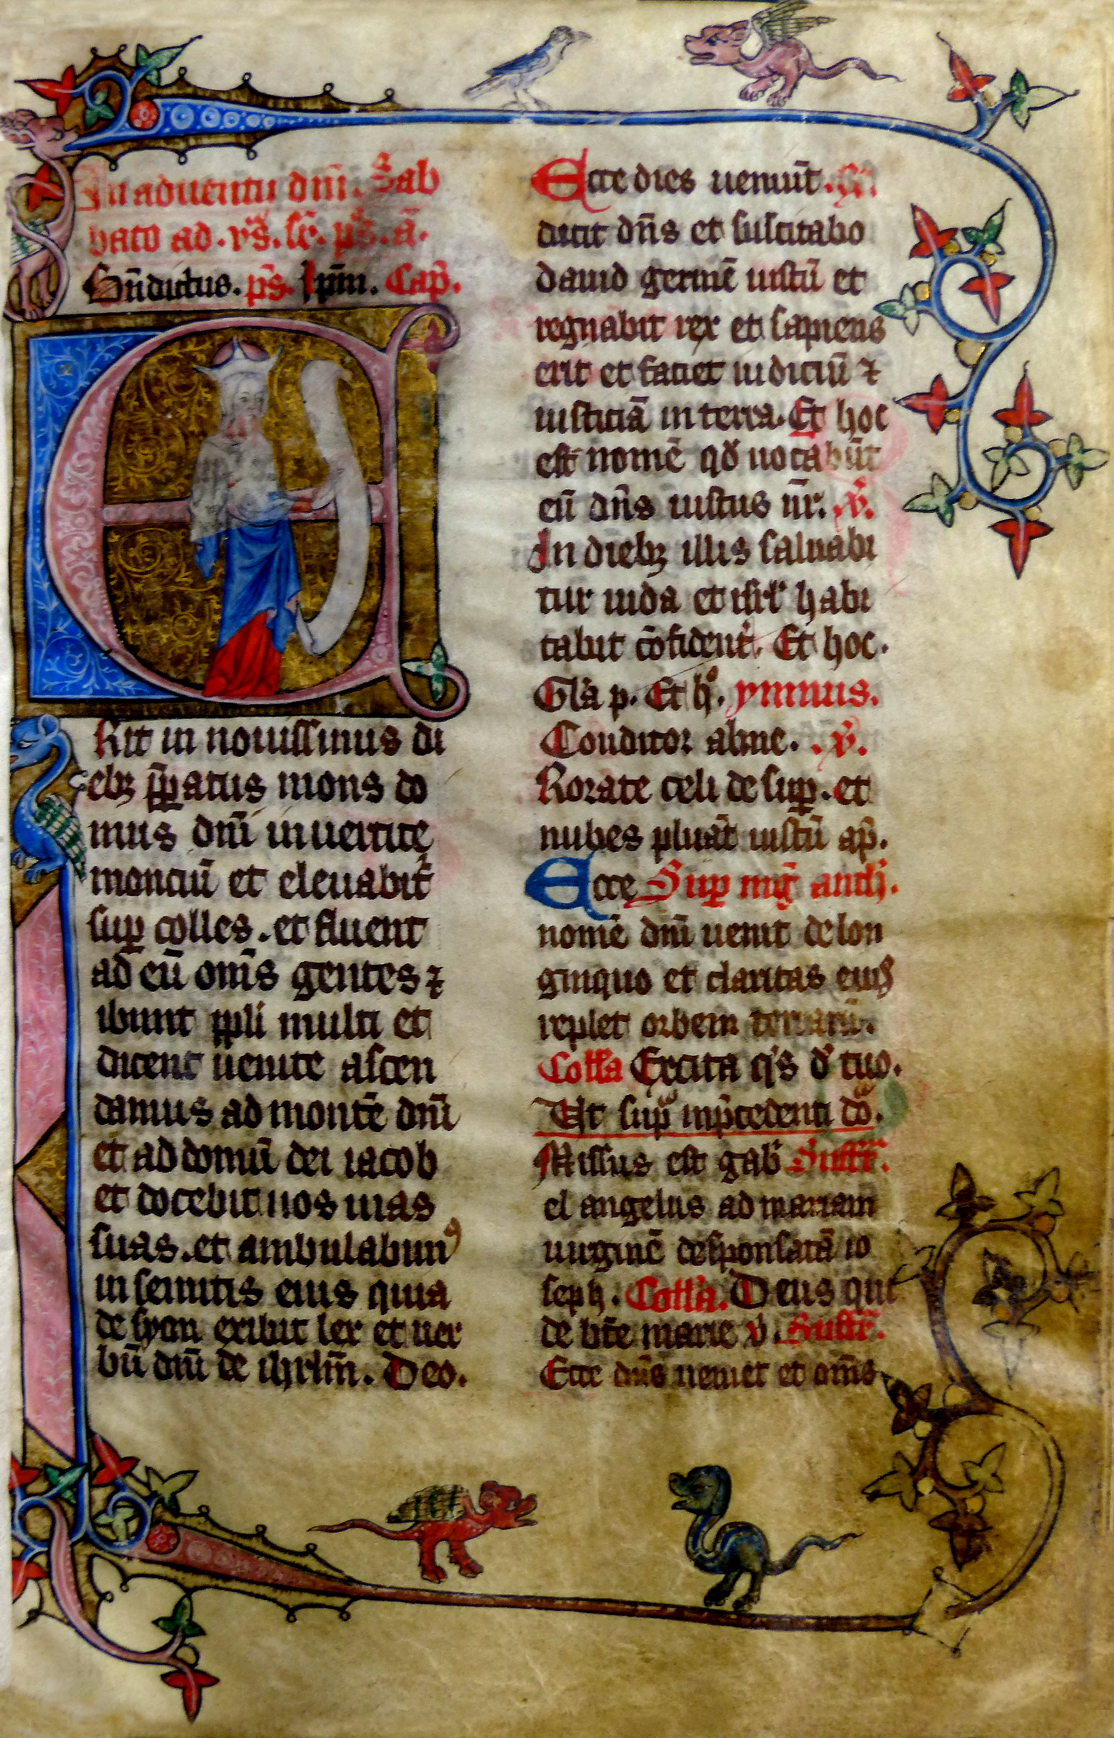 In aduentu dnī. Sab
bato ad. vs̄. sr̄. ps̄. ā.
Bn̄dictus. ps̄. Ipm̄. Cap̄.
Erit in nouissimus di
ebꝫ p̄paratus mons do
mus dnī in uertice
montiū et eleuabit᷑
suꝑ colles. et fluent
ad eū om̄s gentes ⁊
ibunt ppli multi et
dicent uenite ascen
damus ad montē dnī
et ad domū dei iacob
et docebit nos uias
suas. et ambulabimꝰ
in semitis eius quia
de syon exibit lex et uer
bū dnī de ihrlm̄. Deo.
Ecce dies ueniūt.
dicit dn̄s et suscitabo
dauid germē iustū et
regnabit rex et sapiens
erit et faciet iudiciū ⁊
iusticiā in terra. Et hoc
est nomē qd̄ uocabūt
eū dn̄s iustus nr̄. v̄.
In diebꝫ illis saluabi
tur iuda et isrl̄ habi
tabit cōfident᷑. Et hoc.
Gl̄a p. Et h͛. ymnus.
Conditor alme. v̄.
Rorate celi de suꝑ. et
nubes pluāt iustū ap̄.
Ecce Suꝑ mḡ anth̄.
nomē dnī uenit de lon
ginquo et claritas eiuꝰ
replet orbem terrarū.
Coll̄a Excita q̄s d̄ tuo.
Ut sup᷑ in p̄cedenti do᷑.
Missus est gab᷑ Suffr̄.
el angelus ad mariam
uirginē desponsatā io
seph. Coll̄a. Deus qui
de bt̄e marie v̄. Suffr̄.
Ecce dn̄s ueniet et om̄s